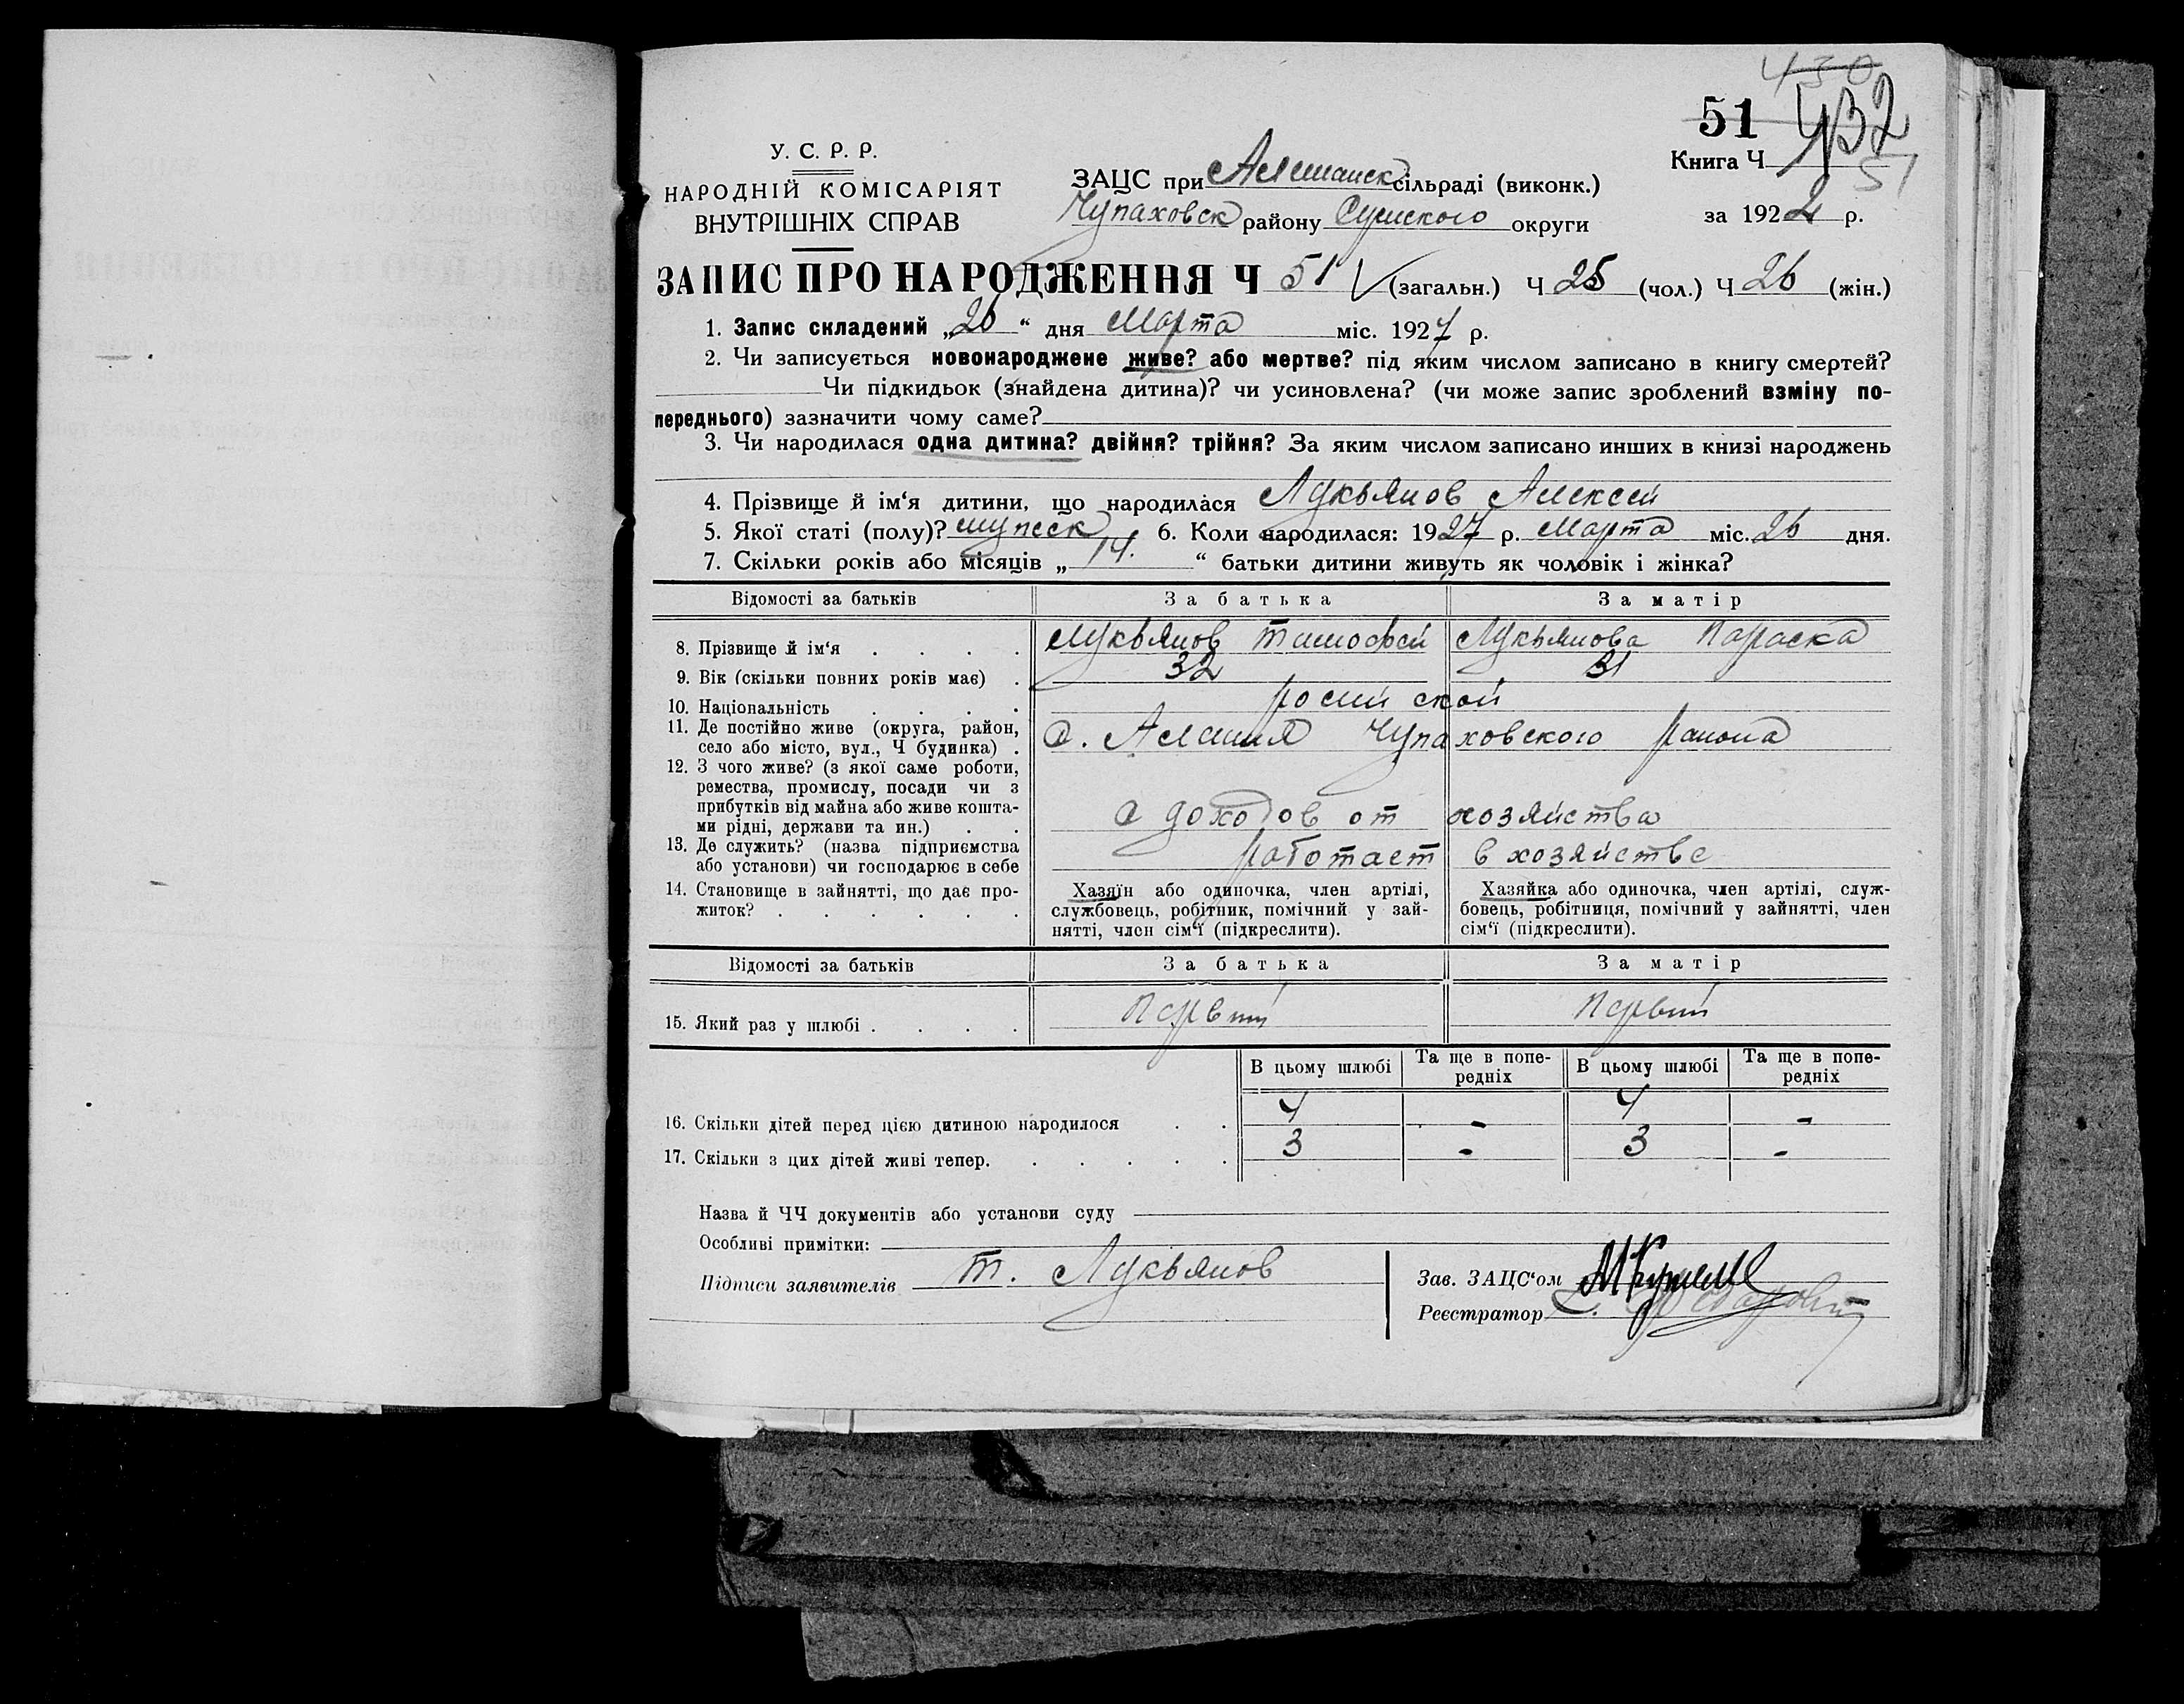 430
51 432
Книга Ч 51
за 1922 р.
У. С. Р. Р.
НАРОДНІЙ КОМІСАРІЯТ
ВНУТРІШНІХ СПРАВ
ЗАЦС при Алешанск сільраді (виконк.)
Чупаховск району Сумского округи
ЗАПИС ПРО НАРОДЖЕННЯ Ч 51 (загальн.) Ч 25 (чол.) Ч 26 (жін.)
1. Запис складений „26“ дня Марта міс. 1927 р.
2. Чи записується новонароджене живе? або мертве? під яким числом записано в книгу смертей?
Чи підкидьок (знайдена дитина)? чи усиновлена? (чи може запис зроблений взміну по-
переднього) зазначити чому саме?
3. Чи народилася одна дитина? двійня? трійня? За яким числом записано инших в книзі народжень
4. Прізвище й ім‘я дитини, що народилася Лукьянов Алексей
5. Якої статі (полу)? мужеск 6. Коли народилася: 1927 р. Марта міс. 26 дня.
7. Скільки років або місяців „ 14. “ батьки дитини живуть як чоловік і жінка?
Відомості за батьків За батька За матір
8. Прізвище й ім‘я . . . . Лукьянов Тимофей Лукьянова Параска
9. Вік (скільки повних років має) . 32 31
10. Національність . . . . росийской
11. Де постійно живе (округа, район,
село або місто, вул., Ч будинка) . с. Алешня Чупаховского района
12. З чого живе? (з якої саме роботи,
ремества, промислу, посади чи з
прибутків від майна або живе кошта-
ми рідні, держави та ин.) . . с доходов от хозяйства
13. Де служить? (назва підприємства
або установи) чи господарює в себе работает в хозяйстве
14. Становище в зайнятті, що дає про-
житок? . . . . . .
Хазяїн або одиночка, член артілі,
службовець, робітник, помічний у зай-
нятті, член сім‘ї (підкреслити).
Хазяйка або одиночка, член артілі, служ-
бовець, робітниця, помічний у зайнятті, член
сім‘ї (підкреслити).
Відомості за батьків За батька За матір
15. Який раз у шлюбі . . . . Первый Первый
В цьому шлюбі Та ще в попе-
редніх В цьому шлюбі Та ще в попе-
редніх
16. Скільки дітей перед цією дитиною народилося . . 4 - 4 -
17. Скільки з цих дітей живі тепер. . . . . . 3 - 3 -
Назва й ЧЧ документів або установи суду
Особливі примітки:
Підписи заявителів Т. Лукьянов
Зав. ЗАЦС‘ом
Реєстратор